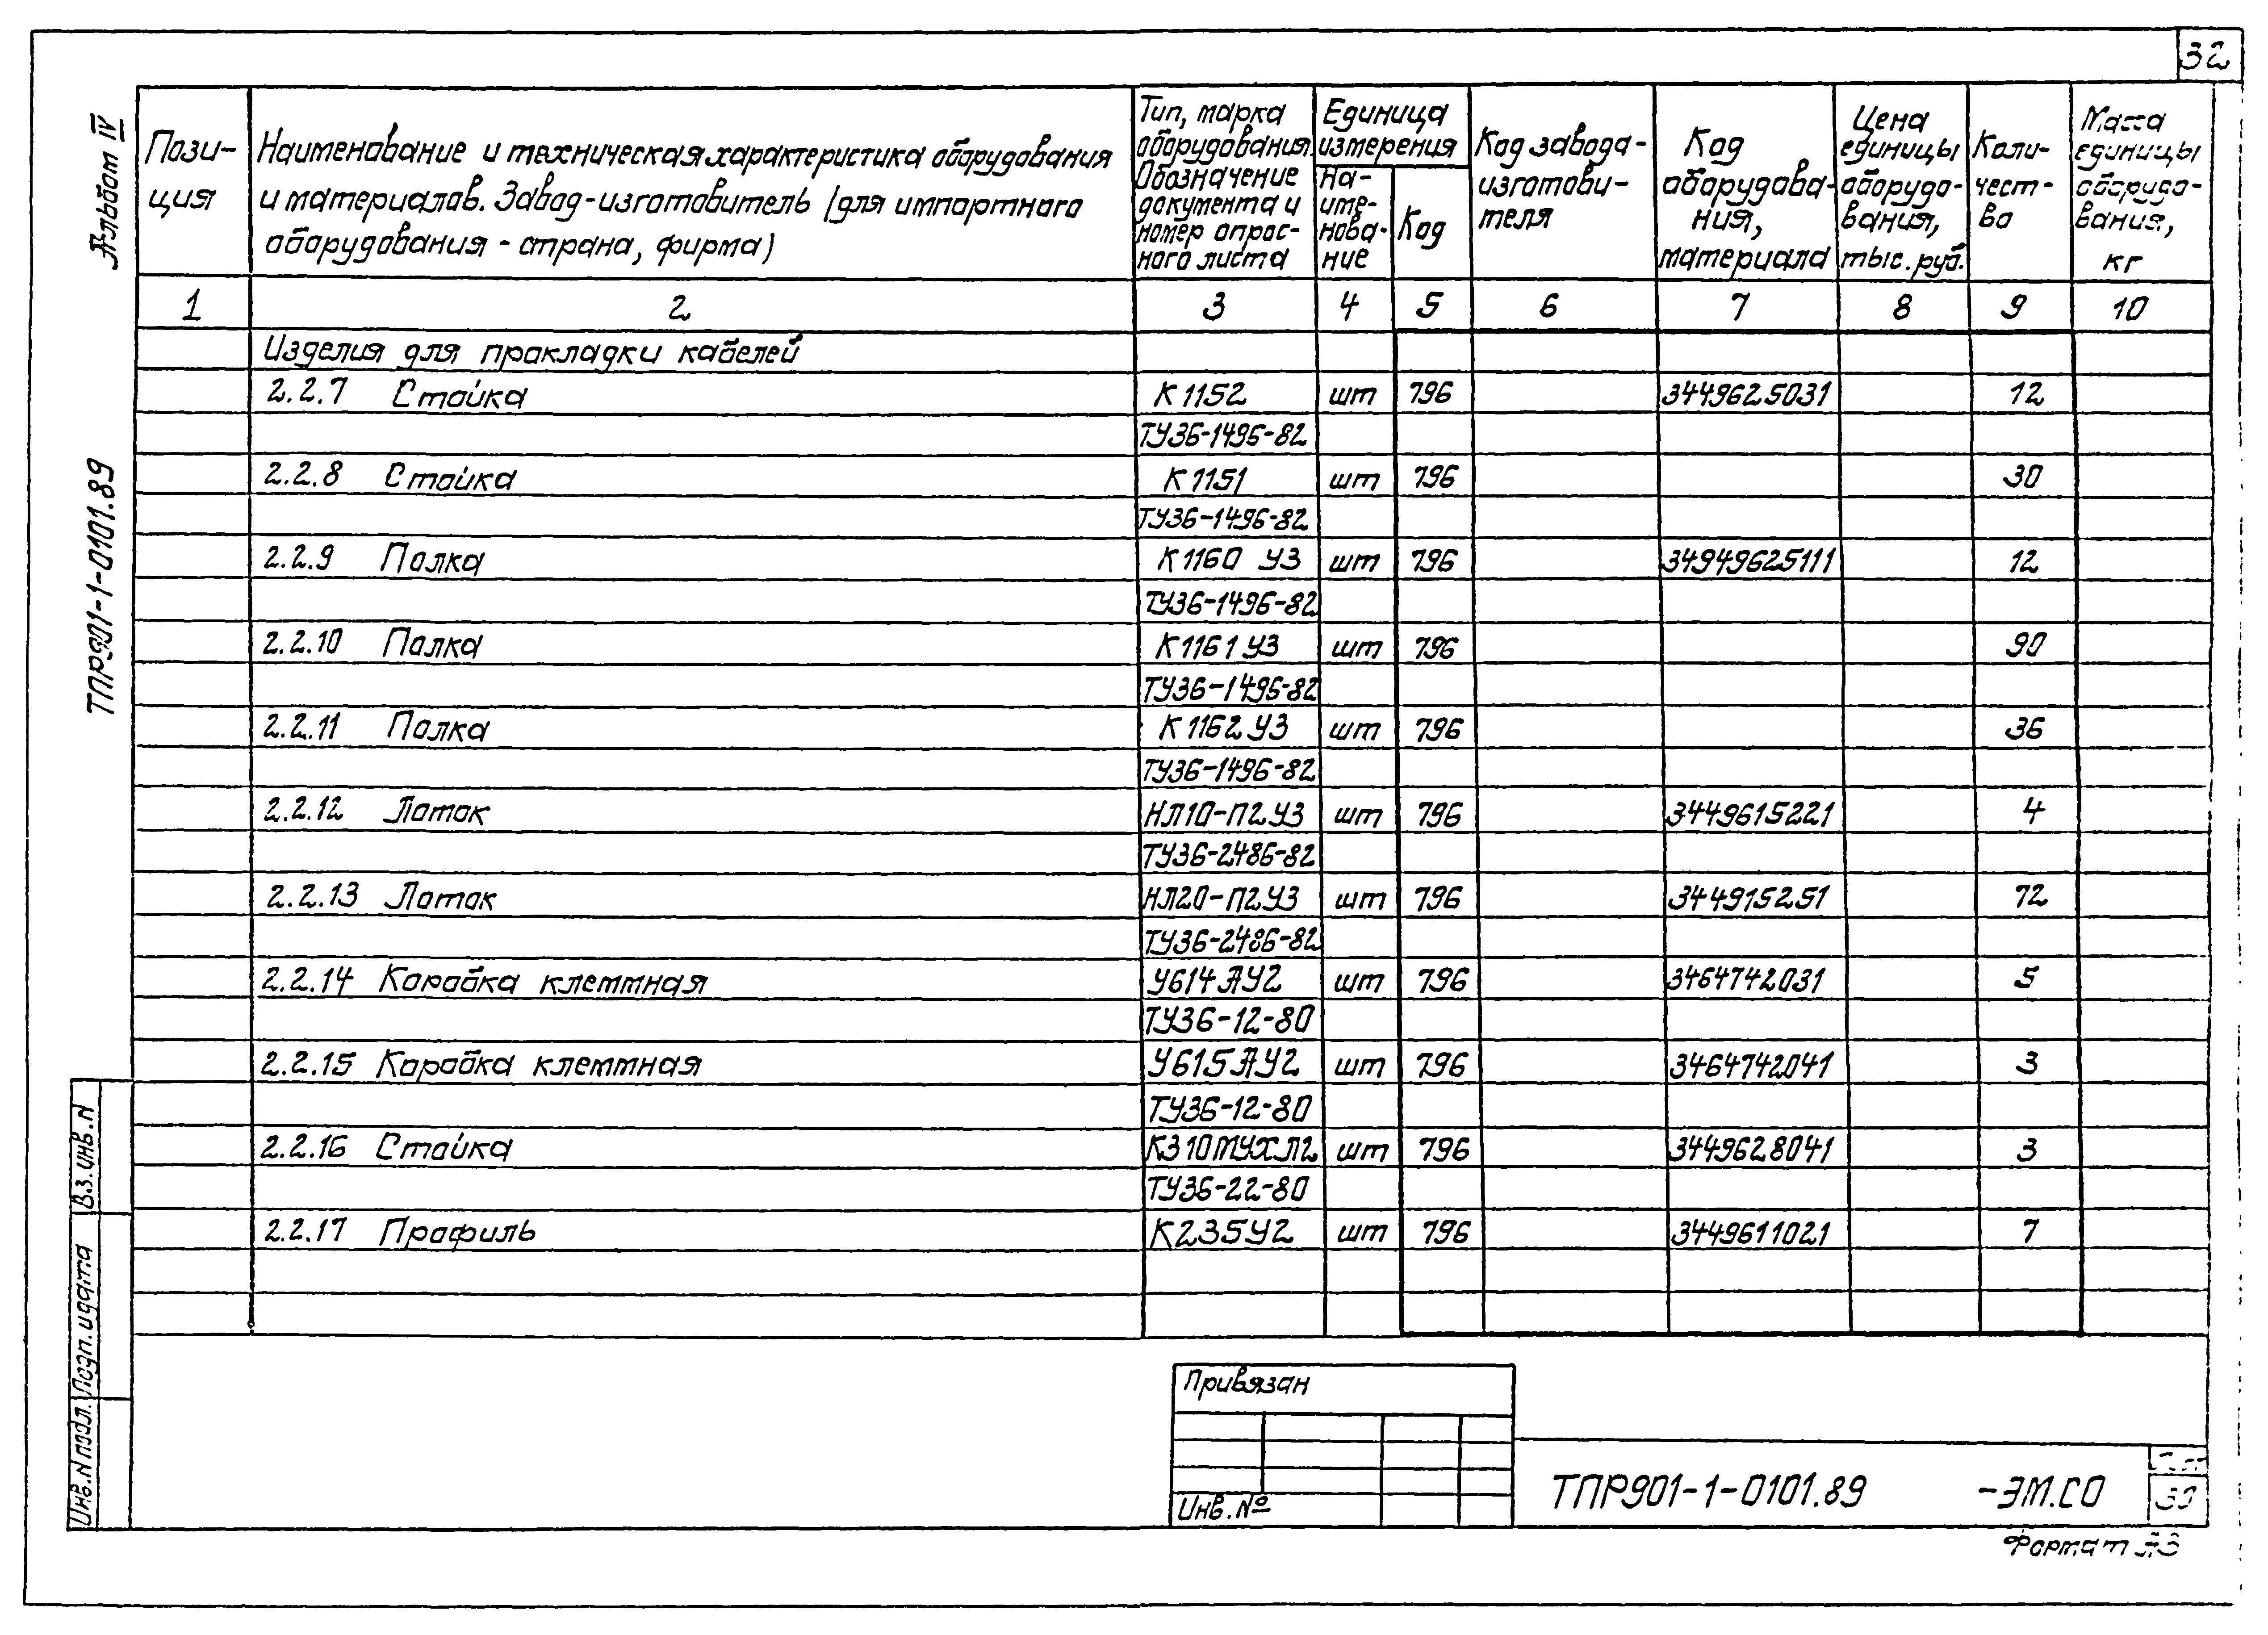 32
Альбом IV
ТПР901-1-0101.89
Пози-
ция
Наименование и техническая характеристика оборудования
и материалов. Завод-изготовитель (для импортного
оборудования - страна, фирма)
Тип, марка
оборудования
Обозначение
документа и
номер опрос-
ного листа
Единица
измерения
На-
име-
нова-
ние
Код
Код завода-
изготови-
теля
Код
оборудова-
ния,
материала
Цена
единицы
оборудо-
вания,
тыс. руб.
Коли-
чест-
во
Масса
единицы
оборудо-
вания,
кг
1 2 3 4 5 6 7 8 9 10
Изделия для прокладки кабелей
2.2.7 Стойка К1152 шт 796 3449625031 12
ТУ36-1496-82
2.2.8 Стойка К1151 шт 796 30
ТУ36-1496-82
2.2.9 Полка К1160 У3 шт 796 34949625111 12
ТУ36-1496-82
2.2.10 Полка К1161 У3 шт 796 90
ТУ36-1496-82
2.2.11 Полка К1162 У3 шт 796 36
ТУ36-1496-82
2.2.12 Лоток НЛ10-П2У3 шт 796 3449615221 4
ТУ36-2486-82
2.2.13 Лоток НЛ20-П2У3 шт 796 344915251 72
ТУ36-2486-82
2.2.14 Коробка клеммная У614АУ2 шт 796 3464742031 5
ТУ36-12-80
2.2.15 Коробка клеммная У615АУ2 шт 796 3464742041 3
ТУ36-12-80
2.2.16 Стойка К310МУХЛ2 шт 796 3449628041 3
ТУ36-22-80
2.2.17 Профиль К235У2 шт 796 3449611021 7
Вз.инв.N
Подп. и дата
Инв.N подл.
Привязан
Инв.№
ТПР901-1-0101.89 -ЭМ.СО
Лист
30
Формат А3